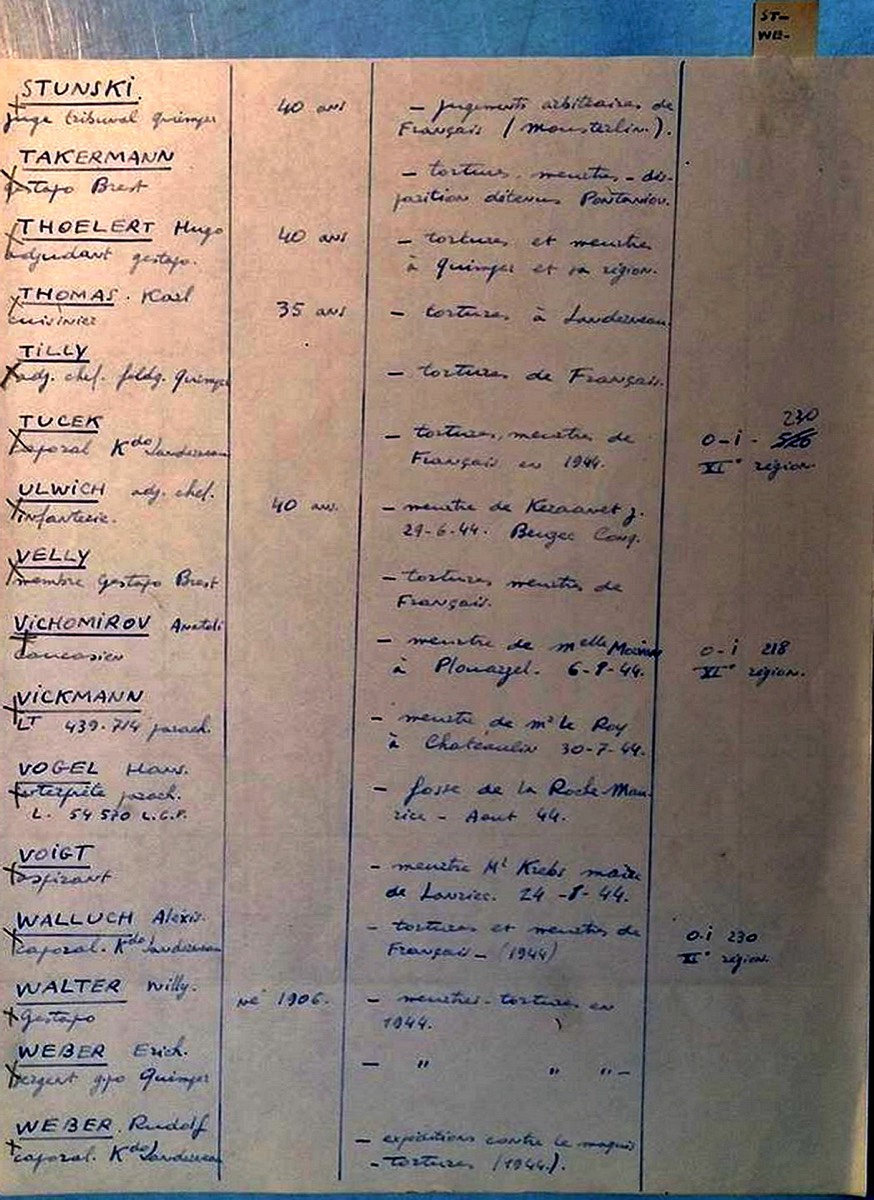 ST-
WE-
STUNSKI.
juge tribunal Quimper
40 ans
- jugements arbitraires de
Français (Mousterlin.).
TAKERMANN
gestapo Brest
- tortures. meurtres - dis-
parition détenus Pontaniou.
THOELERT Hugo
adjudant gestapo.
40 ans
- tortures et meurtres
à Quimper et sa région.
THOMAS. Karl
cuisinier
35 ans
- tortures à Landerneau.
TILLY
adj. chef. feldg. Quimper
- tortures de Français.
TUCEK
Caporal Kdo Landerneau
- tortures, meurtres de
Français en 1944.
230
0-i -
XI° région
ULWICH adj. chef.
infanterie.
40 ans.
- meurtre de J.
29-6-44. Beuzec Conq.
VELLY
membre gestapo Brest
- tortures meurtres de
Français.
VICHOMIROV Anatoli
caucasien
- meurtre de Melle
à Plouarzel. 6-8-44.
0-i 218
XI° région.
VICKMANN
LT 439.714 parach.
- meurtre de Mr Le Roy
à Chateaulin 30-7-44.
VOGEL Hans.
interprète parach.
L. 54 570 L.G.P.
- fosse de la Roche-Mau-
rice - Aout 44.
VOIGT
aspirant
- meurtre Mr Krebs maire
de Lanriec. 24-8-44.
WALLUCH Alexis.
caporal. Kdo Landerneau
- tortures et meurtres de
Français - (1944)
0.i 230
XI° région.
WALTER Willy.
Gestapo
né 1906.
- meurtres - tortures en
1944.
WEBER Erich.
sergent gpo Quimper
- " " " -
WEBER. Rudolf
caporal. Kdo Landerneau
- expéditions contre le maquis
- tortures (1944.).